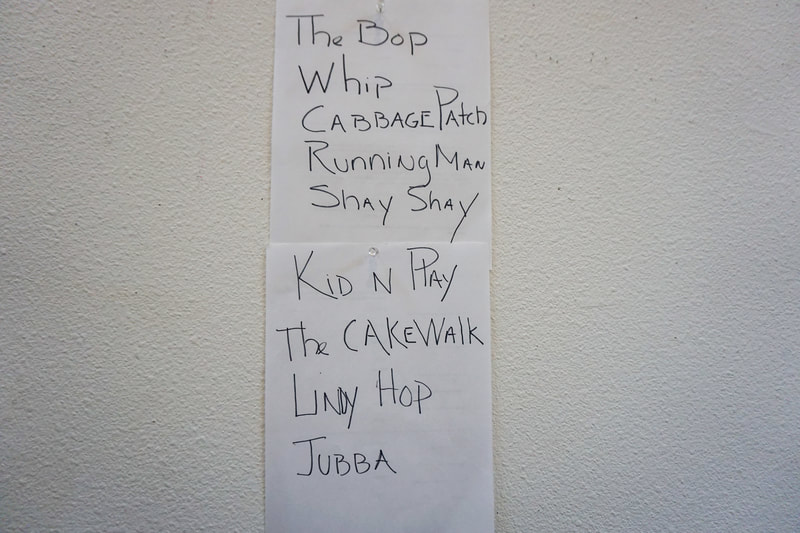 The Bop
Whip
CABBAGE Patch
Running Man
Shay Shay
Kid N Play
The CAKEWalk
Lindy Hop
JUBBA